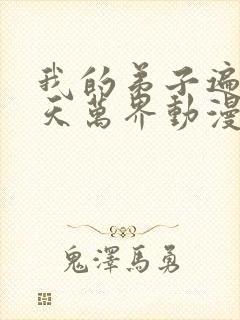 我的弟子遍
天萬界動漫
鬼澤馬勇